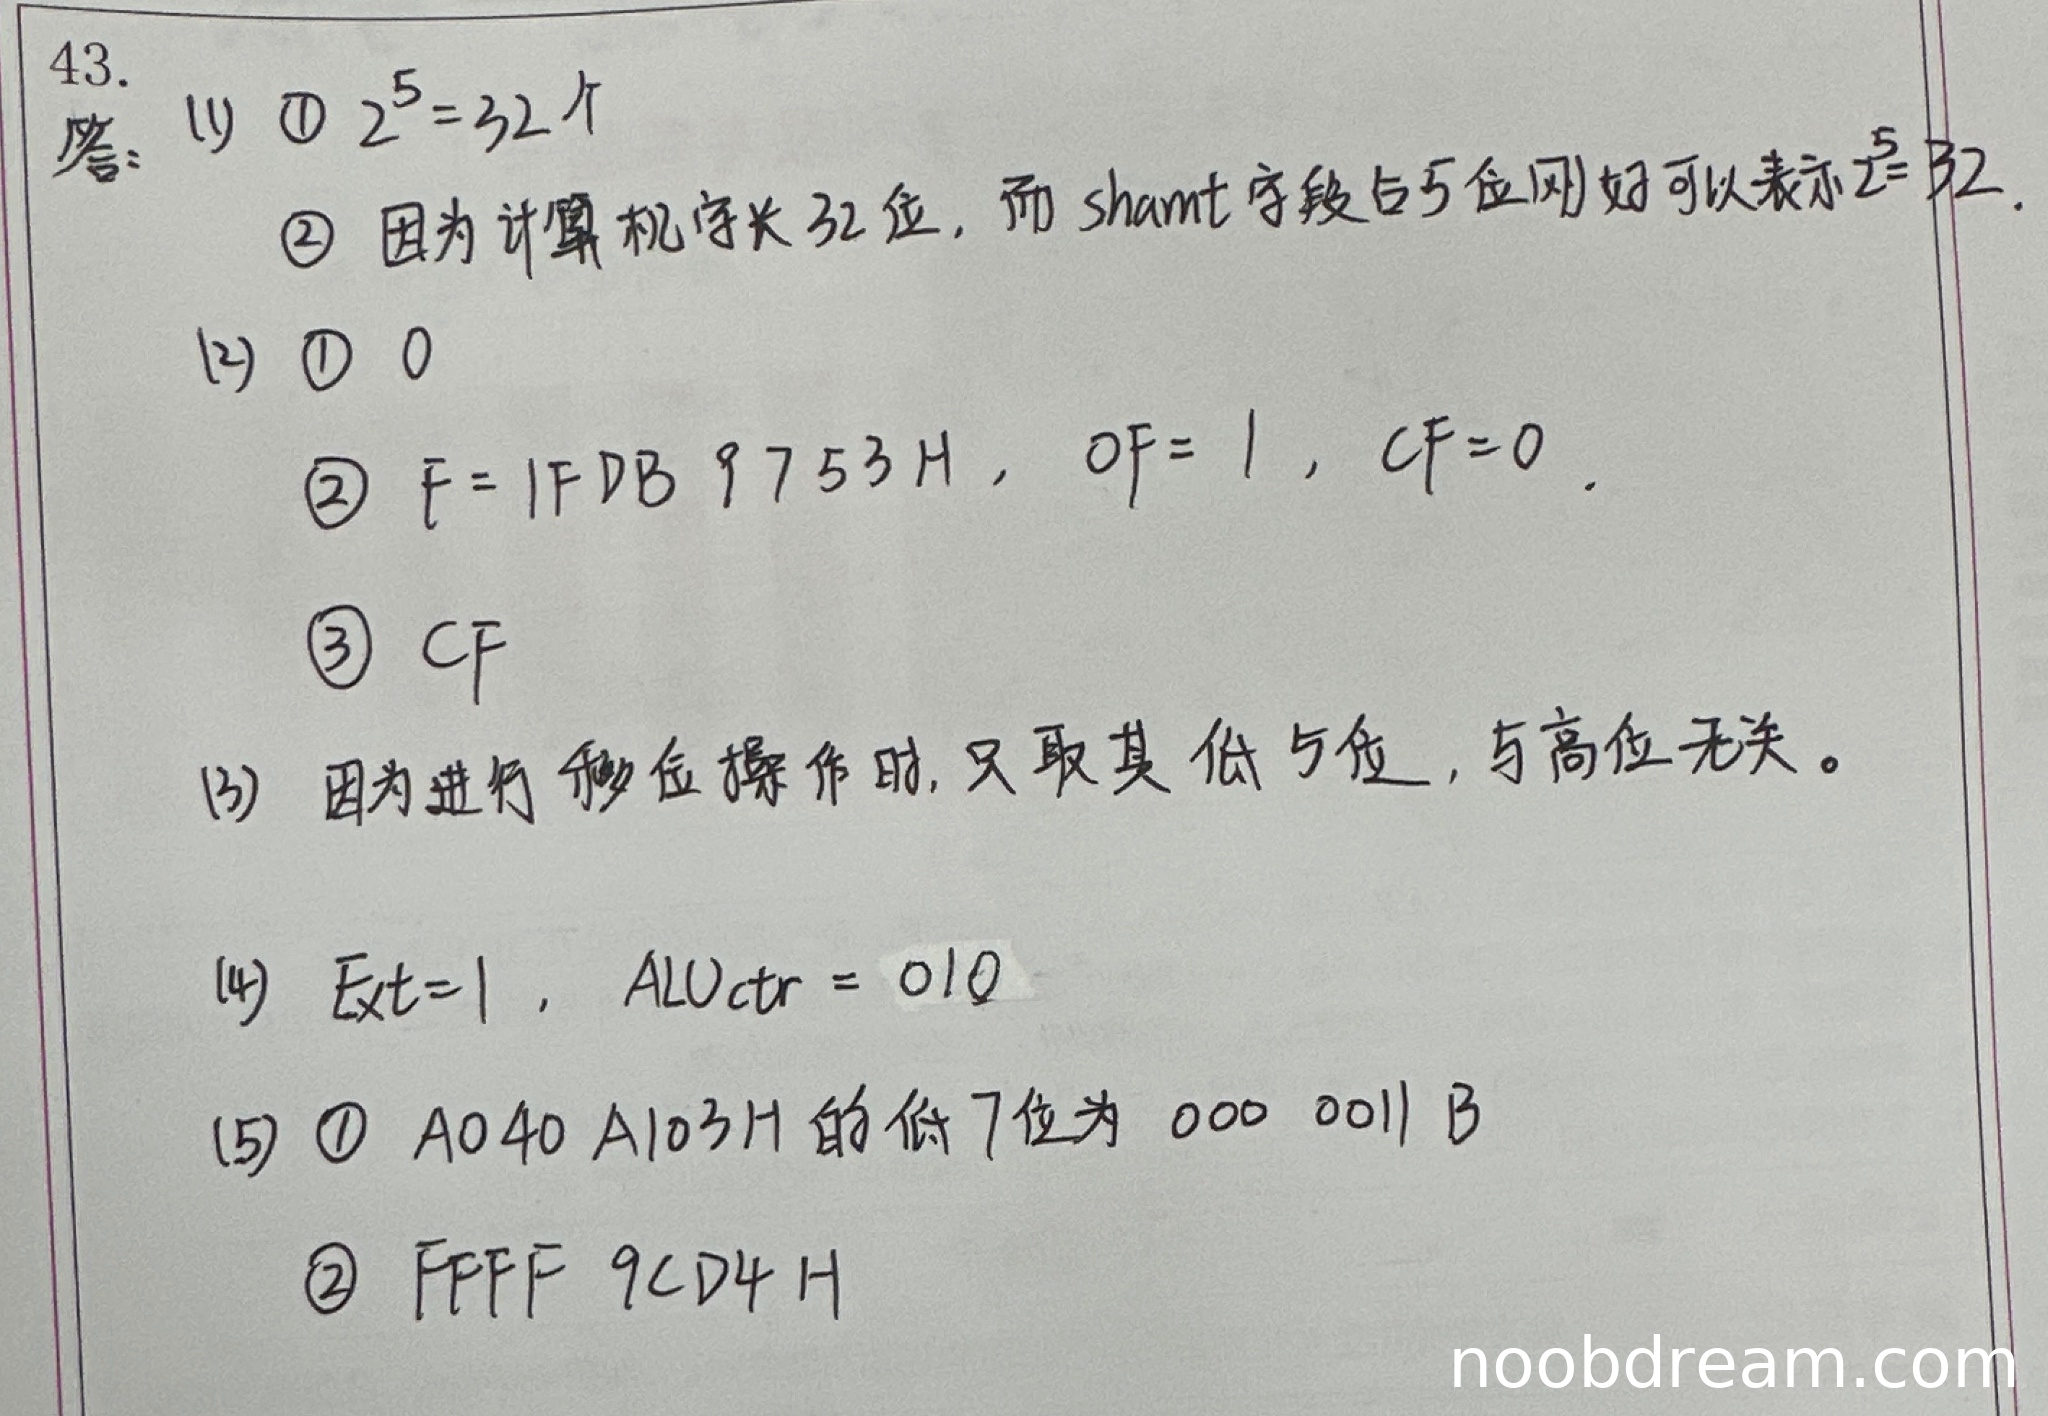 43.
答: (1) ① 2⁵=32个
② 因为计算机字长32位, 而shamt字段占5位刚好可以表示2⁵=32.
(2) ① 0
② F=1FDB 9753H, OF=1, CF=0.
③ CF
(3) 因为进行移位操作时, 只取其低5位, 与高位无关。
(4) Ext=1, ALUctr=010
(5) ① A040 A103H的低7位为 000 0011 B
② FFFF 9CD4H
noobdream.com